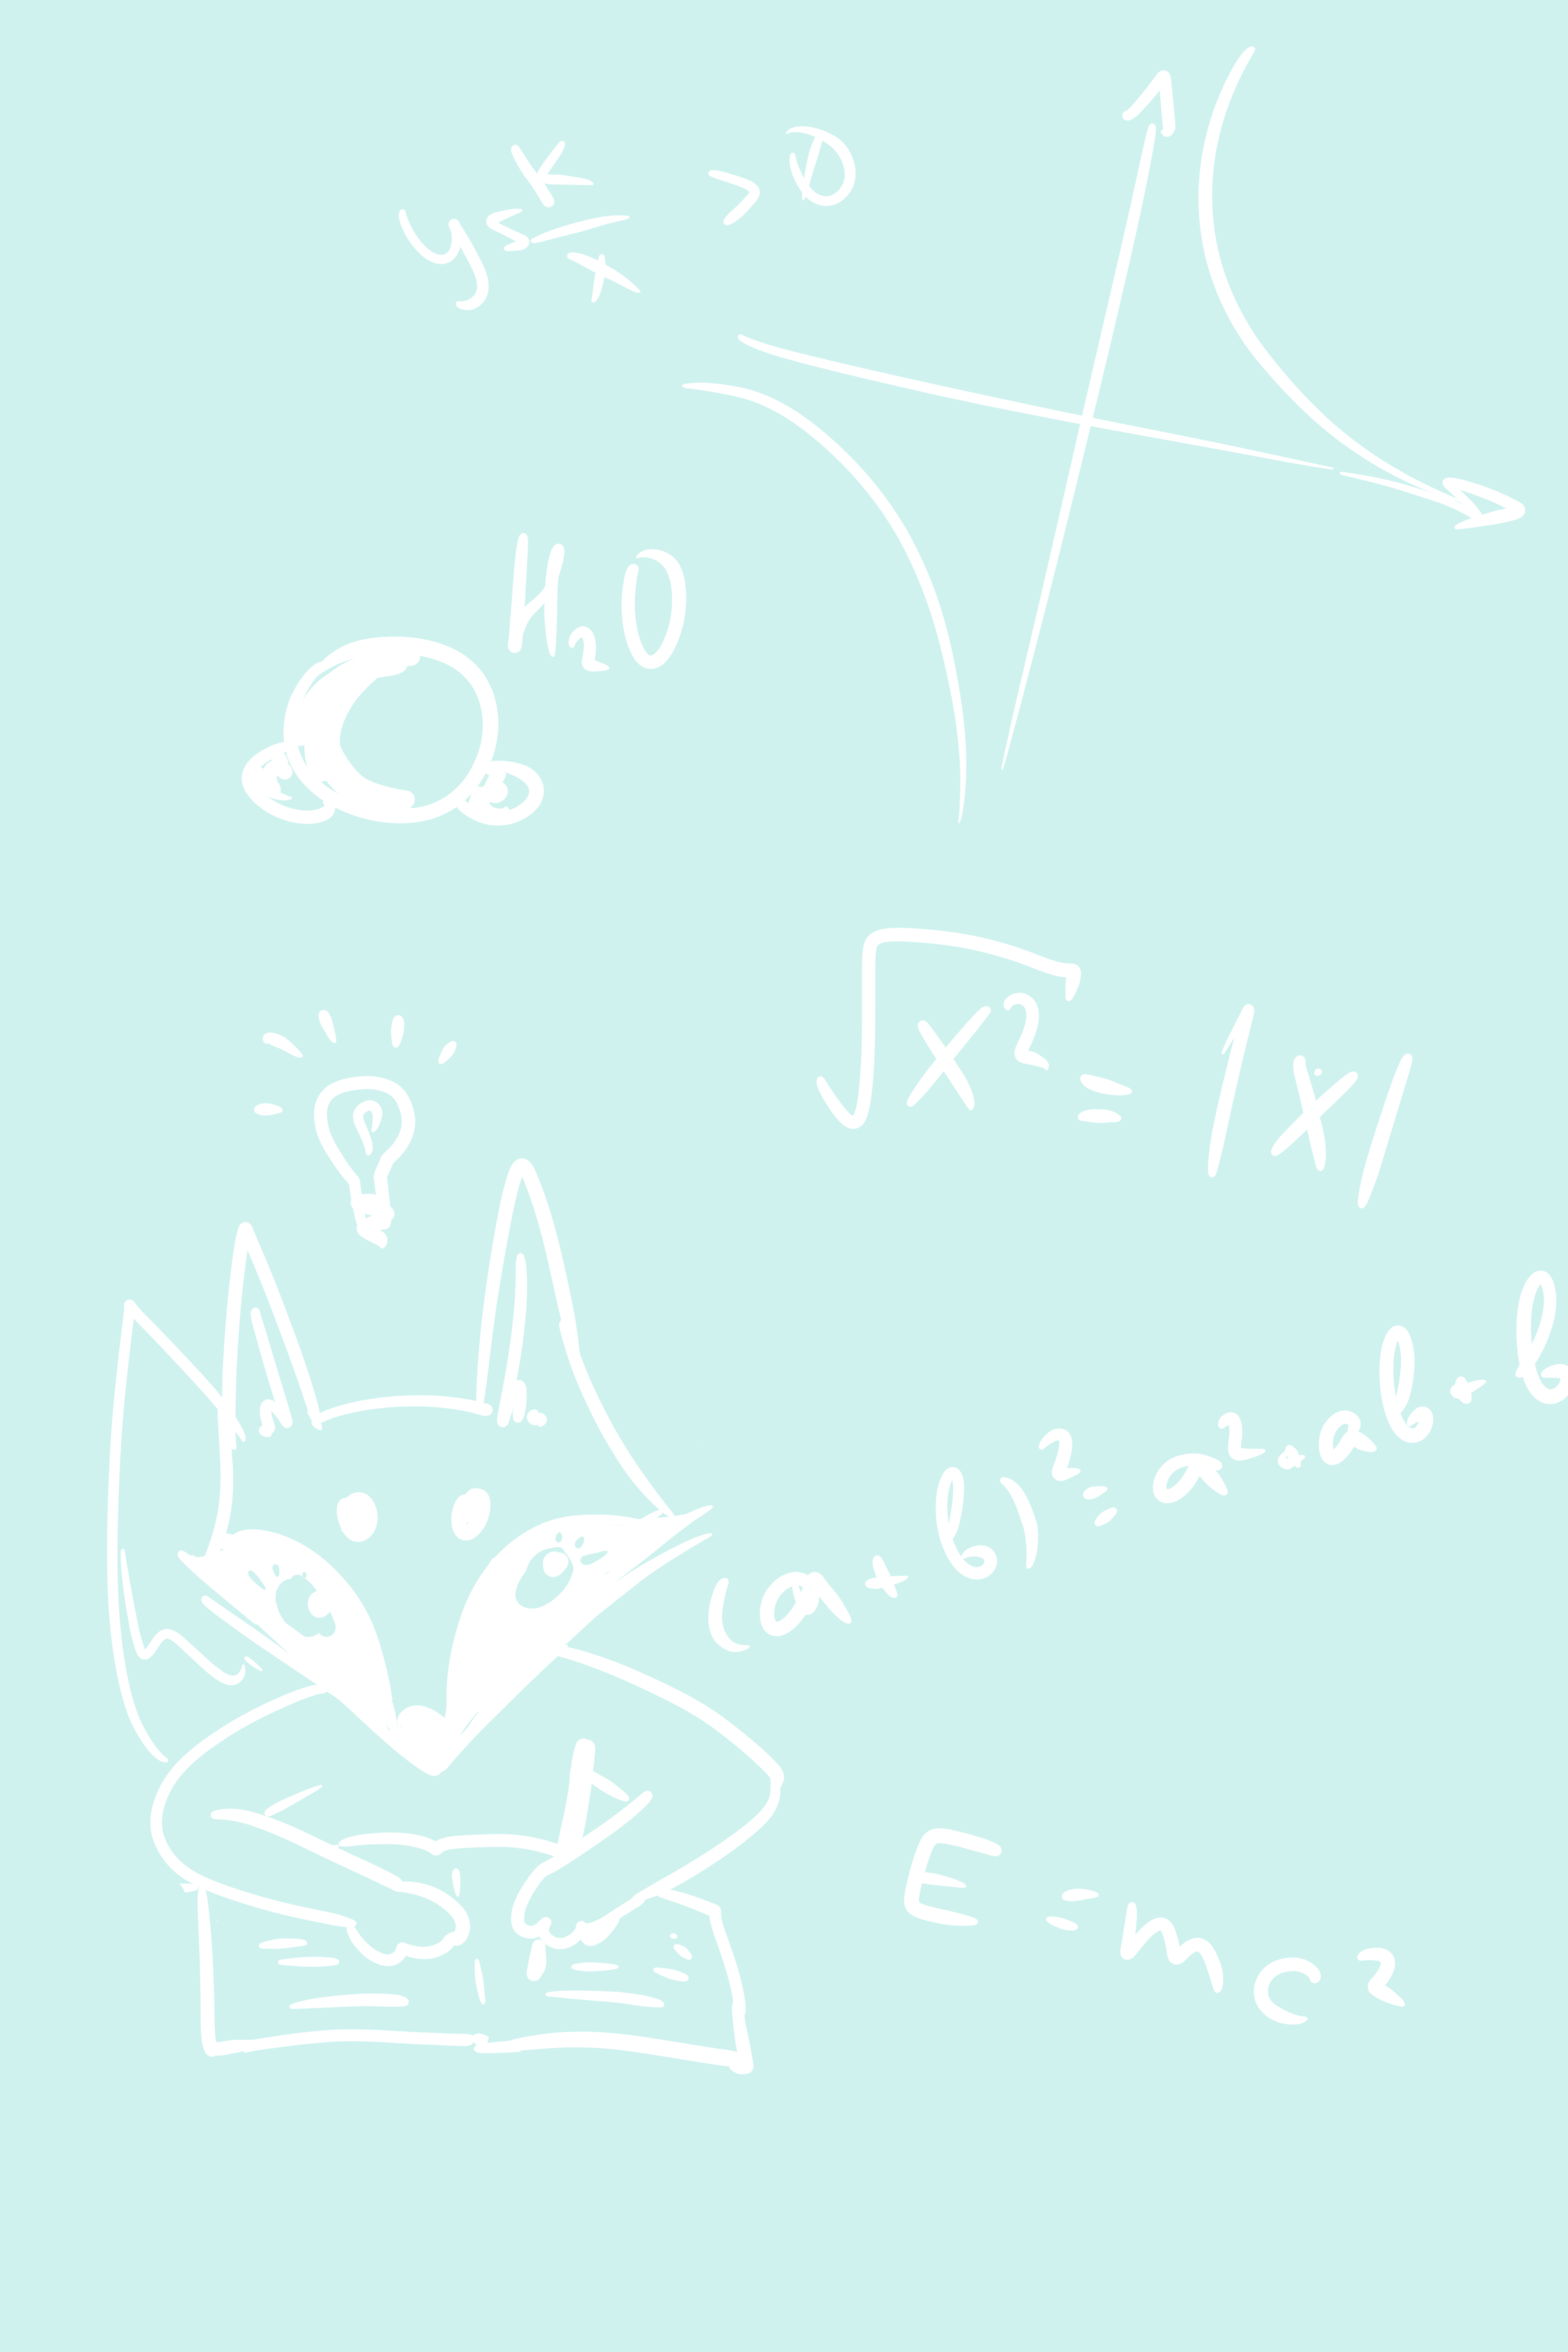 y = k/x > 0
H₂O
√x² = |x|
(a+b)² = a² + ab + b
E = mc²